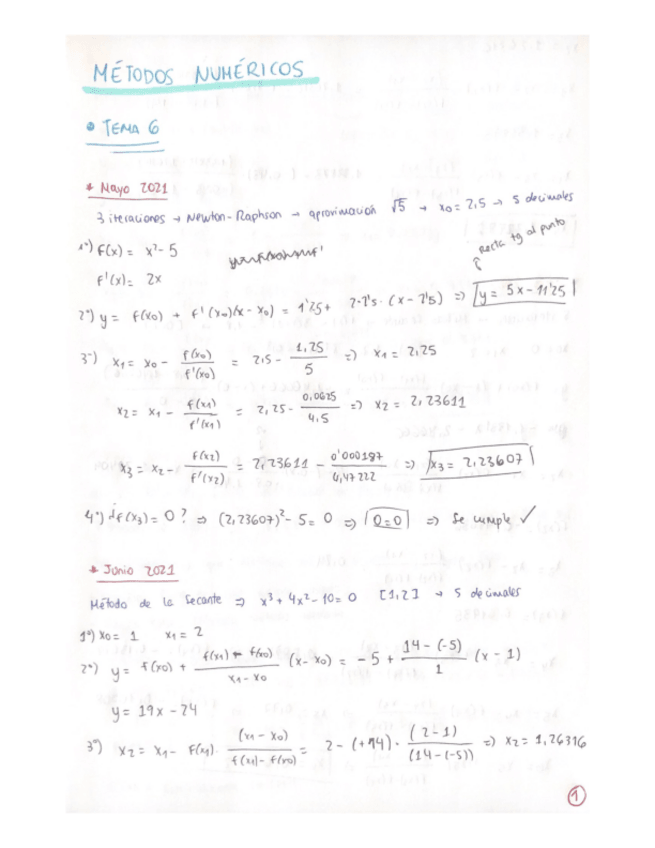 MÉTODOS NUMÉRICOS
• TEMA 6
* Mayo 2021
3 iteraciones → Newton-Raphson → aproximación √5 → x0 = 2,5 → 5 decimales
1º) f(x) = x² - 5
recta tg al punto
f'(x) = 2x
2º) y = f(x0) + f'(x0)(x - x0) = 1'25 + 2·2'5 · (x - 2'5) => y = 5x - 11'25
3º) x1 = x0 - f(x0)/f'(x0) = 2,5 - 1,25/5 => x1 = 2,25
x2 = x1 - f(x1)/f'(x1) = 2,25 - 0,0625/4,5 => x2 = 2,23611
x3 = x2 - f(x2)/f'(x2) = 2,23611 - 0'000187/4,47222 => x3 = 2,23607
4º) ¿f(x3) = 0? => (2,23607)² - 5 = 0 => 0 = 0 => Se cumple ✓
* Junio 2021
Método de la Secante => x³ + 4x² - 10 = 0 [1,2] → 5 decimales
1º) x0 = 1 x1 = 2
2º) y = f(x0) + f(x1) - f(x0)/x1 - x0 (x - x0) = -5 + 14 - (-5)/1 (x - 1)
y = 19x - 24
3º) x2 = x1 - f(x1) · (x1 - x0)/f(x1) - f(x0) = 2 - (+14) · (2 - 1)/(14 - (-5)) => x2 = 1,26316
1